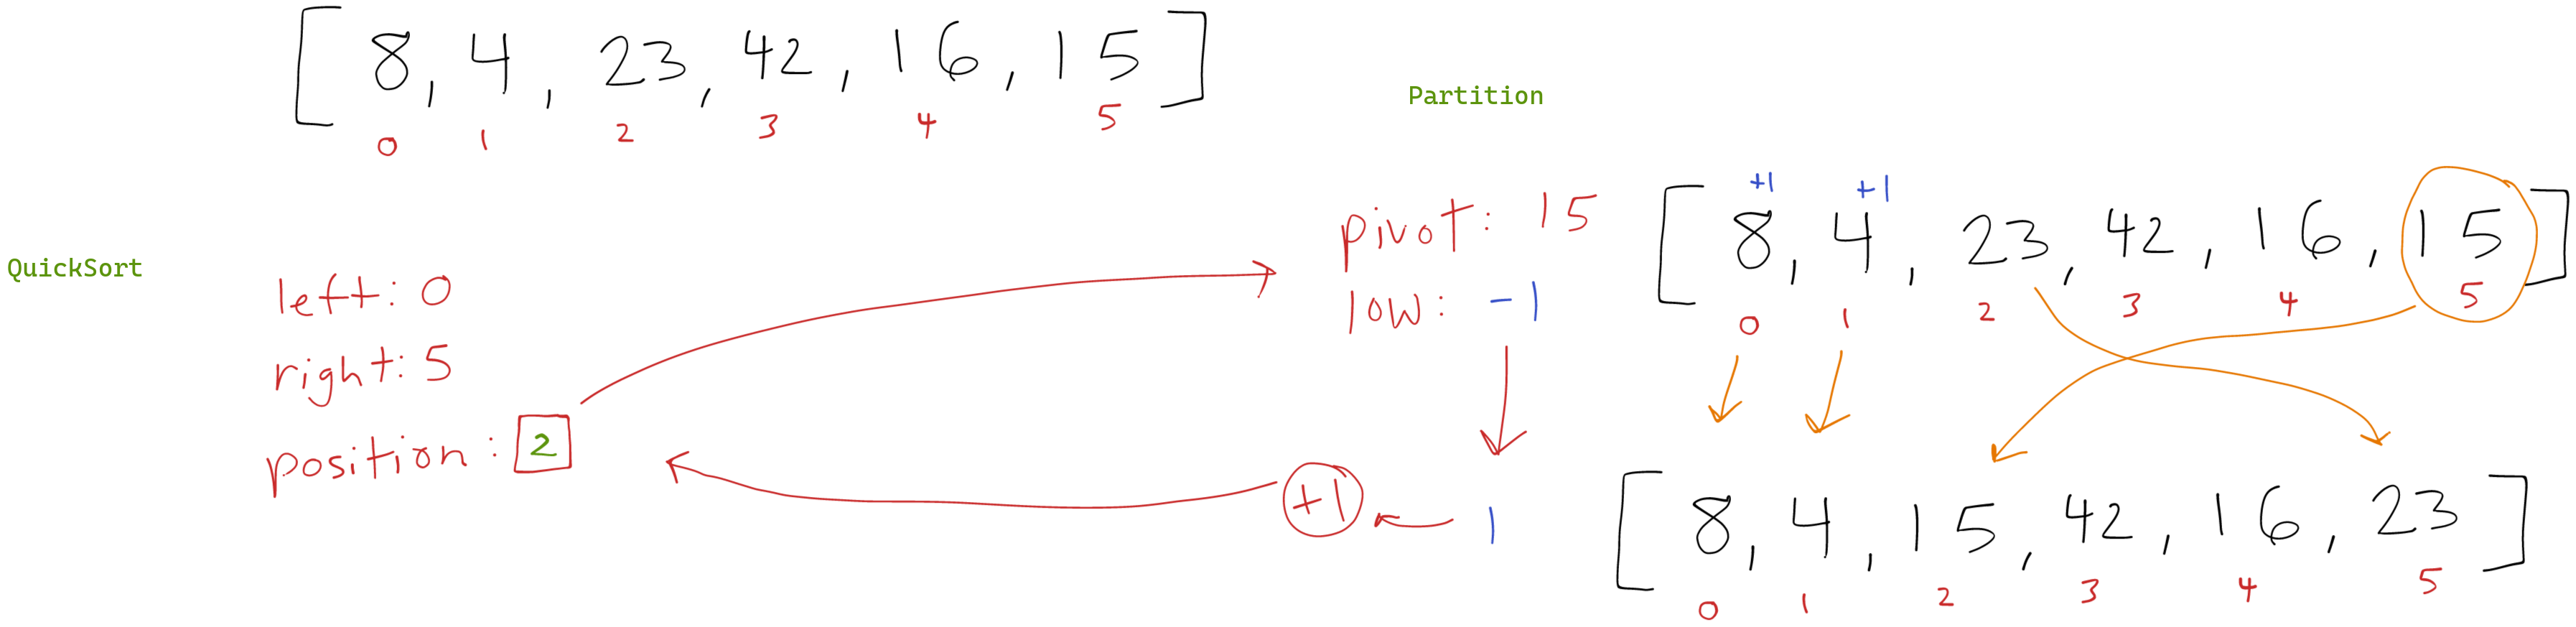 [ 8, 4, 23, 42, 16, 15 ]
0 1 2 3 4 5
Partition
QuickSort
left: 0
right: 5
position: 2
pivot: 15
low: -1
+1 +1
[ 8, 4, 23, 42, 16, 15 ]
0 1 2 3 4 5
+1
1
[ 8, 4, 15, 42, 16, 23 ]
0 1 2 3 4 5